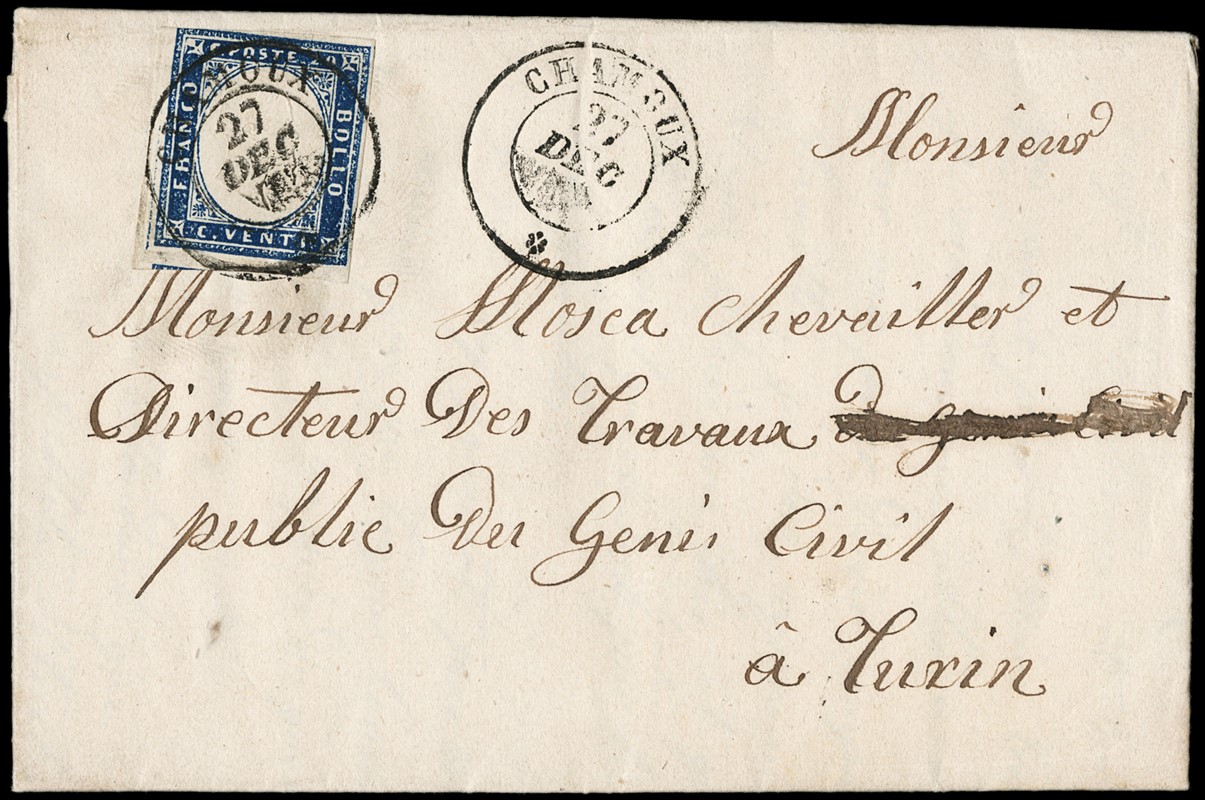 C. POSTE 20
FRANCO
BOLLO
C. VENTI
CHAMOUX
27
DEC
CHAMOUX
27
DEC
Monsieur
Monsieur Mosca Chevailler et
Directeur Des Travaux du genie Civil
public Du Genie Civil
à Turin